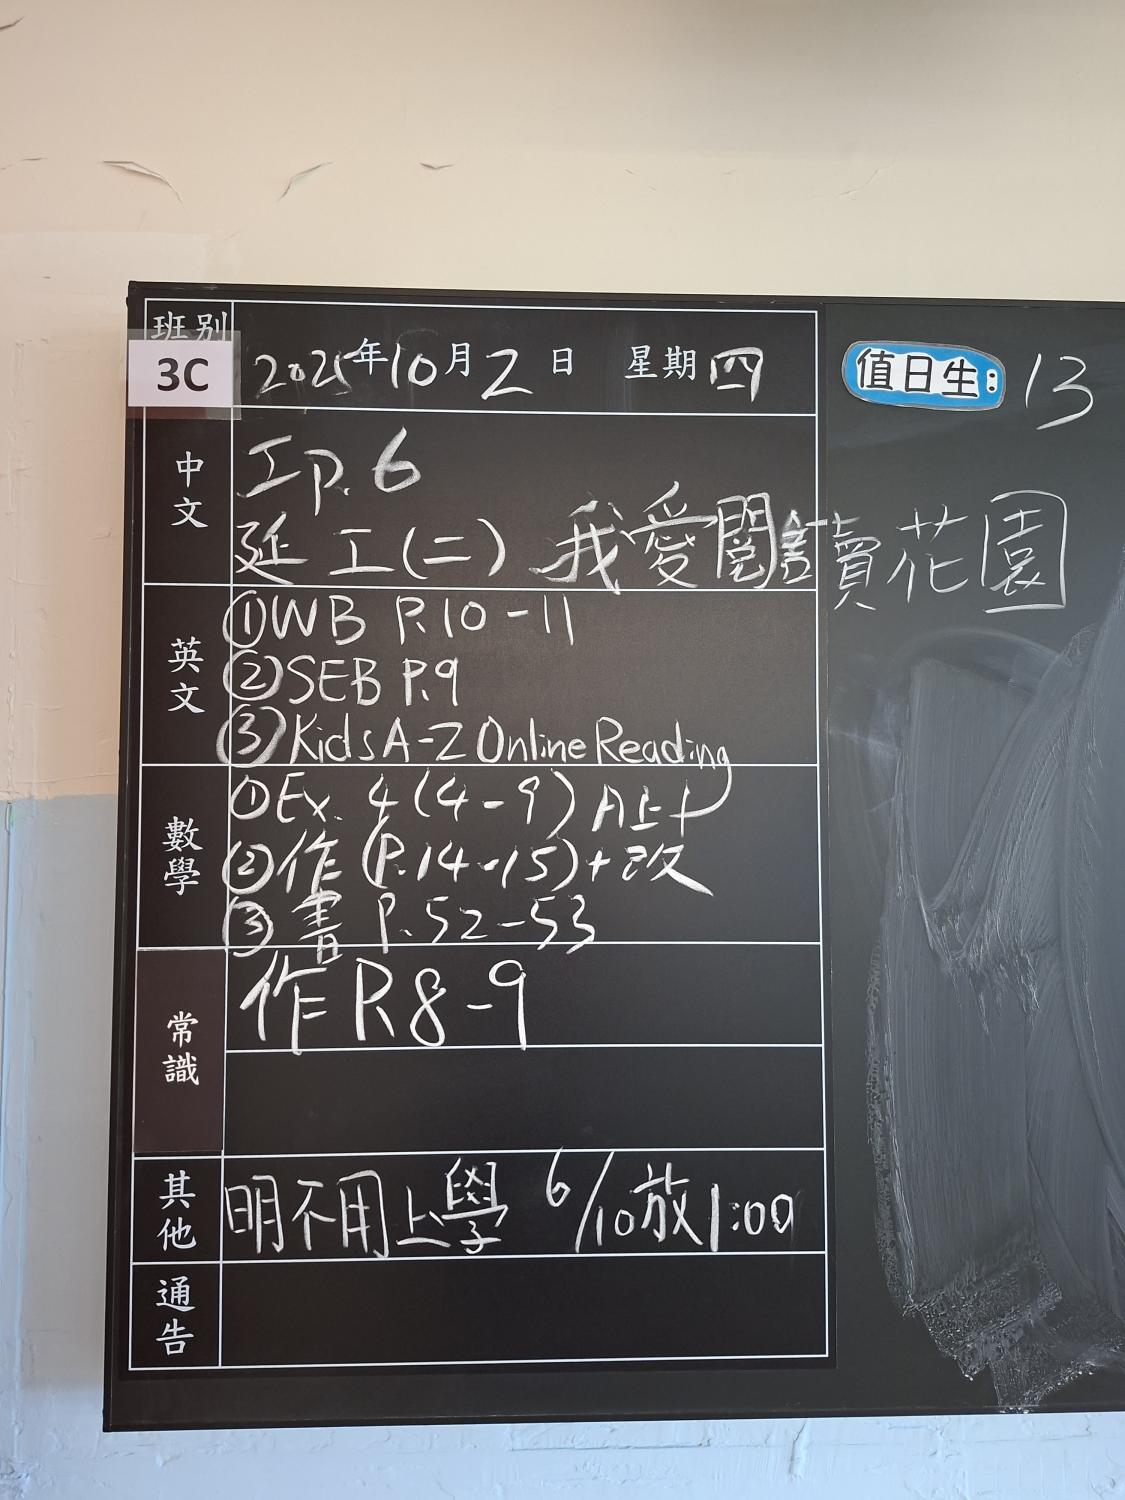 班別
3C
2025年10月2日 星期四
值日生: 13
中文
工P.6
延 工(二) 我愛閱讀花園
英文
①WB P.10-11
②SEB P.9
③Kids A-Z Online Reading
數學
①Ex. 4 (4-9) A上+
②作 (P.14-15)+改
③書 P.52-53
常識
作 P.8-9
其他
明不用上學 6/10放1:00
通告